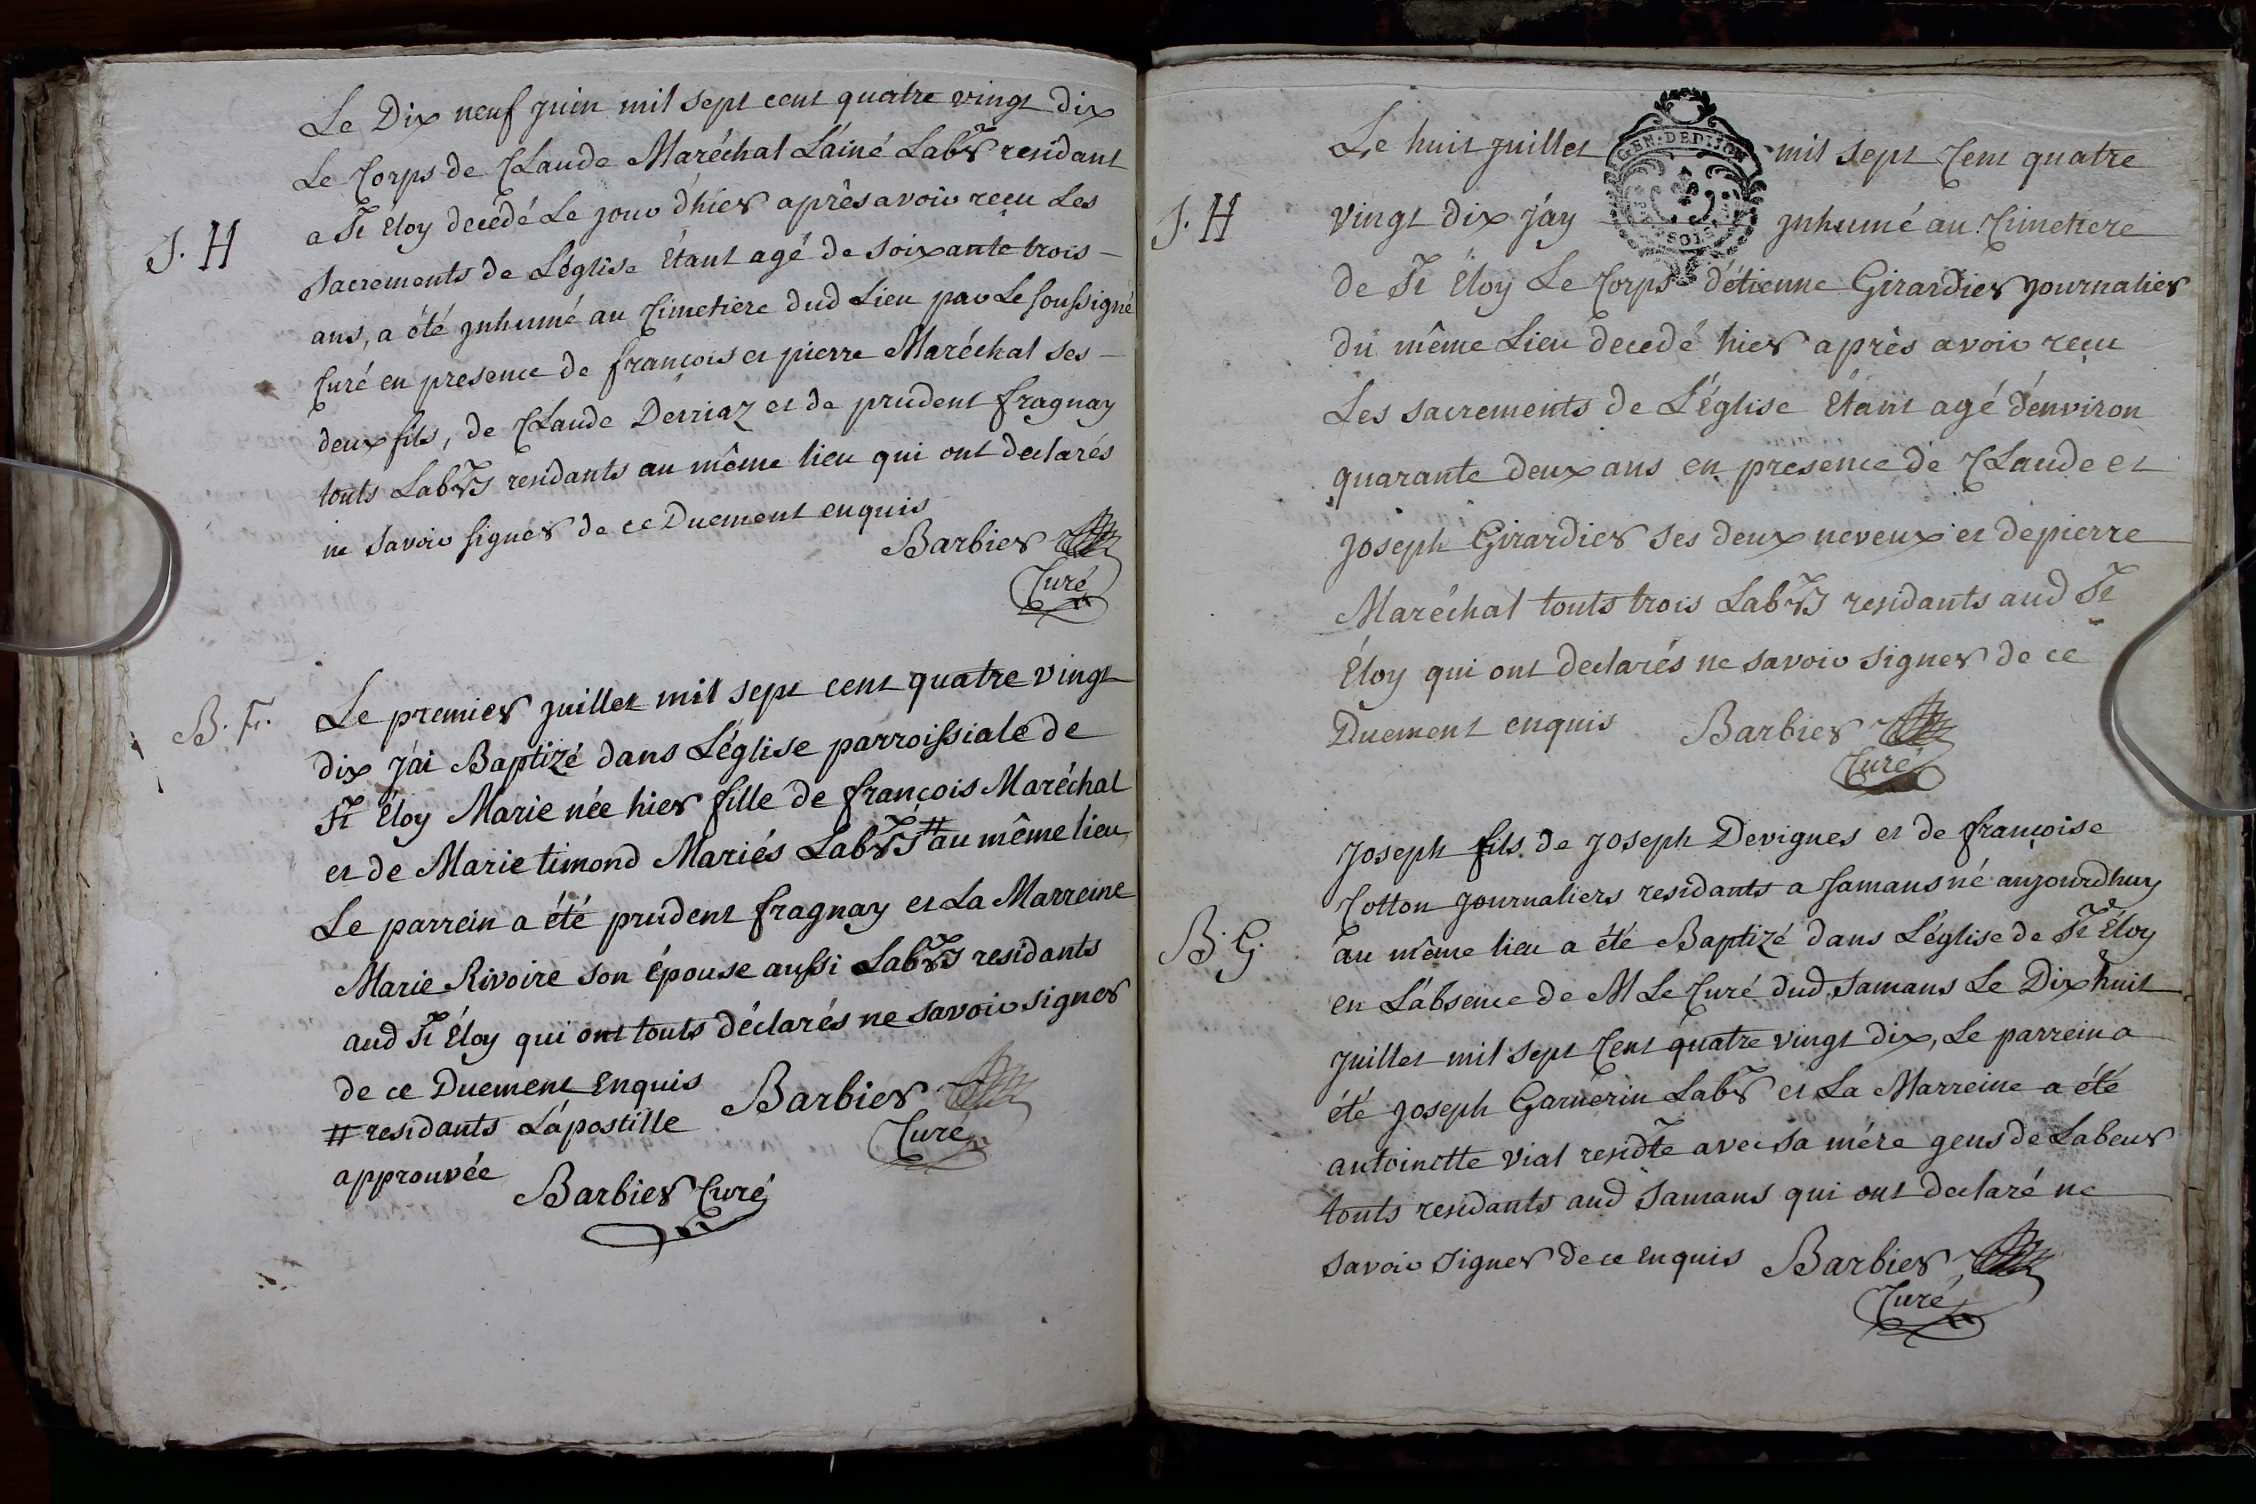 Le Dix neuf juin mil sept cent quatre vingt dix
Le Corps de Claude Maréchal L'ainé Labr residant
a St Eloy decedé Le jour d'hier après avoir reçu Les
J. H
sacrements de L'église Étant agé de soixante trois
ans, a été inhumé au Cimetiere dud Lieu par Le soussigné
Curé en presence de françois et pierre Maréchal ses
deux fils, de Claude Derriaz et de prudent fragnay
touts Labrs residants au même lieu qui ont declarés
ne savoir signer de ce Duement enquis
Barbier
Curé
B. F.
Le premier juillet mil sept cent quatre vingt
dix j'ai Baptizé dans L'église parroissiale de
St Éloy Marie née hier fille de françois Maréchal
et de Marie timond Mariés Labrs # au même lieu
Le parrein a été prudent fragnay et La Marreine
Marie Rivoire son épouse aussi Labrs residants
aud St Éloy qui ont touts déclarés ne savoir signer
de ce Duement Enquis Barbier
# residants L'apostille Curé
approuvée Barbier Curé
Le huit juillet mil sept Cent quatre
GEN. DE DIJON
J. H
vingt dix j'ay inhumé au Cimetiere
de St Éloy Le Corps d'étienne Girardier journalier
du même Lieu decedé hier après avoir reçu
Les sacrements de L'église Étant agé d'environ
quarante deux ans en presence de Claude et
joseph Girardier ses deux neveux et de pierre
Maréchal touts trois Labrs residants aud St
Éloy qui ont declarés ne savoir signer de ce
Duement enquis Barbier
Curé
joseph fils de joseph Devignes et de françoise
Cotton journaliers residants a Samans né aujourdhuy
B. G.
au même lieu a été Baptizé dans L'église de St Éloy
en L'absence de M Le Curé dud Samans Le Dix huit
juillet mil sept Cent quatre vingt dix, Le parrein a
été joseph Garnerin Labr et La Marreine a été
antoinette vial residte avec sa mére gens de Labeur
touts residants aud Samans qui ont declaré ne
savoir signer de ce enquis Barbier
Curé